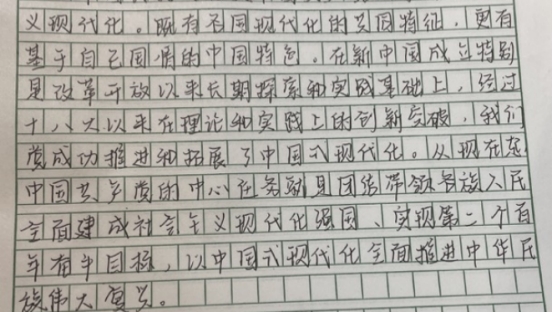 义现代化。既有各国现代化的共同特征，更有
基于自己国情的中国特色。在新中国成立特别
是改革开放以来长期探索和实践基础上，经过
十八大以来在理论和实践上的创新突破，我们
党成功推进和拓展了中国式现代化。从现在起
中国共产党的中心任务就是团结带领各族人民
全面建成社会主义现代化强国、实现第二个百
年奋斗目标，以中国式现代化全面推进中华民
族伟大复兴。